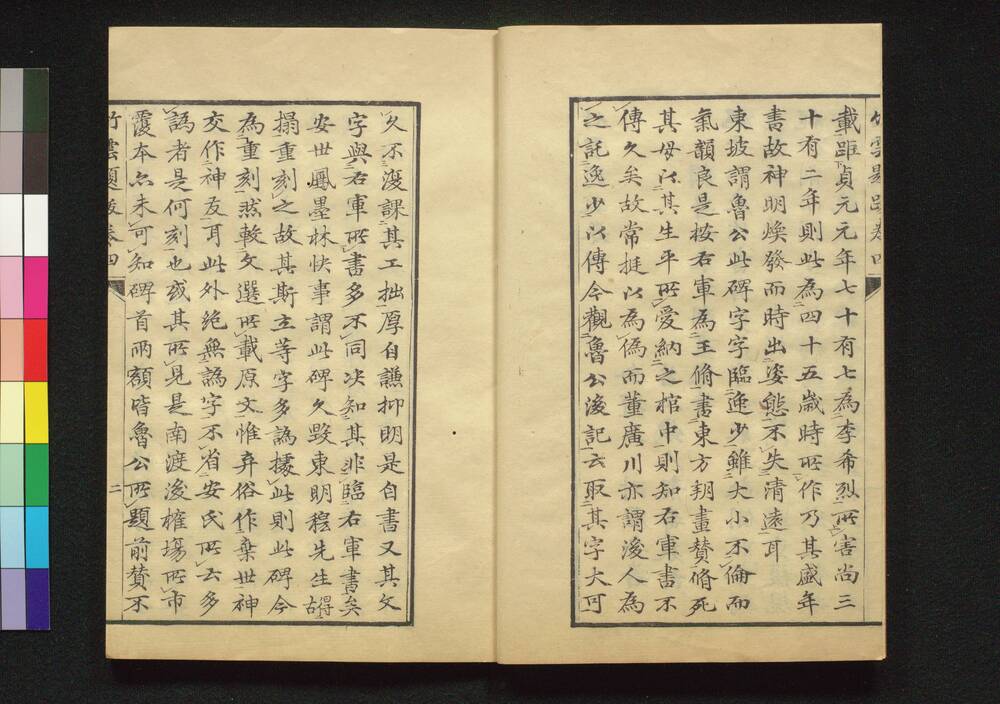 竹雲題跋卷四
載距貞元元年七十有七為李希烈所害尚三
十有二年則此為四十五歲時所作乃其盛年
書故神明煥發而時出姿態不失清遠耳
東坡謂魯公此碑字字臨逸少雖大小不倫而
氣韻良是按右軍為王脩書東方朔畫贊脩死
其母以其生平所愛納之棺中則知右軍書不
傳久矣故常挺以為偽而董廣川亦謂後人為
之託逸少以傳今觀魯公後記云取其字大可
久不復課其工拙厚自謙抑明是自書又其文
字與右軍所書多不同決知其非臨右軍書矣
安世鳳墨林快事謂此碑久毀東明穆先生得
搨重刻之故其斯立等字多譌據此則此碑今
為重刻然較文選所載原文惟弃俗作棄世神
交作神友耳此外絶無譌字不省安氏所云多
譌者是何刻也或其所見是南渡後榷場所市
覆本亦未可知碑首兩額皆魯公所題前贊不
竹雲題跋卷四
二